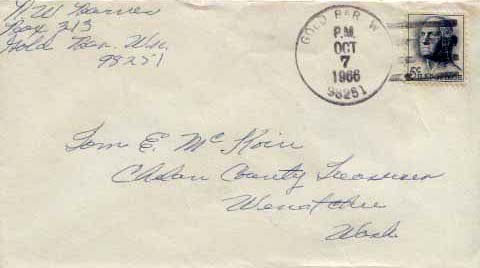 Box 313
Gold Bar, Wn.
98251
GOLD BAR W
P.M.
OCT
7
1966
98251
5¢
Tom E. Mc Koin
Chelan County Treasurer
Wenatchee
Wash.